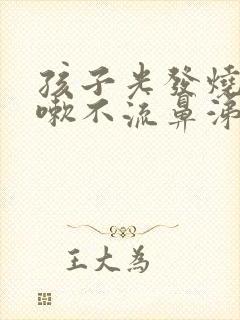 孩子光發燒
嗽不流鼻涕
王大為